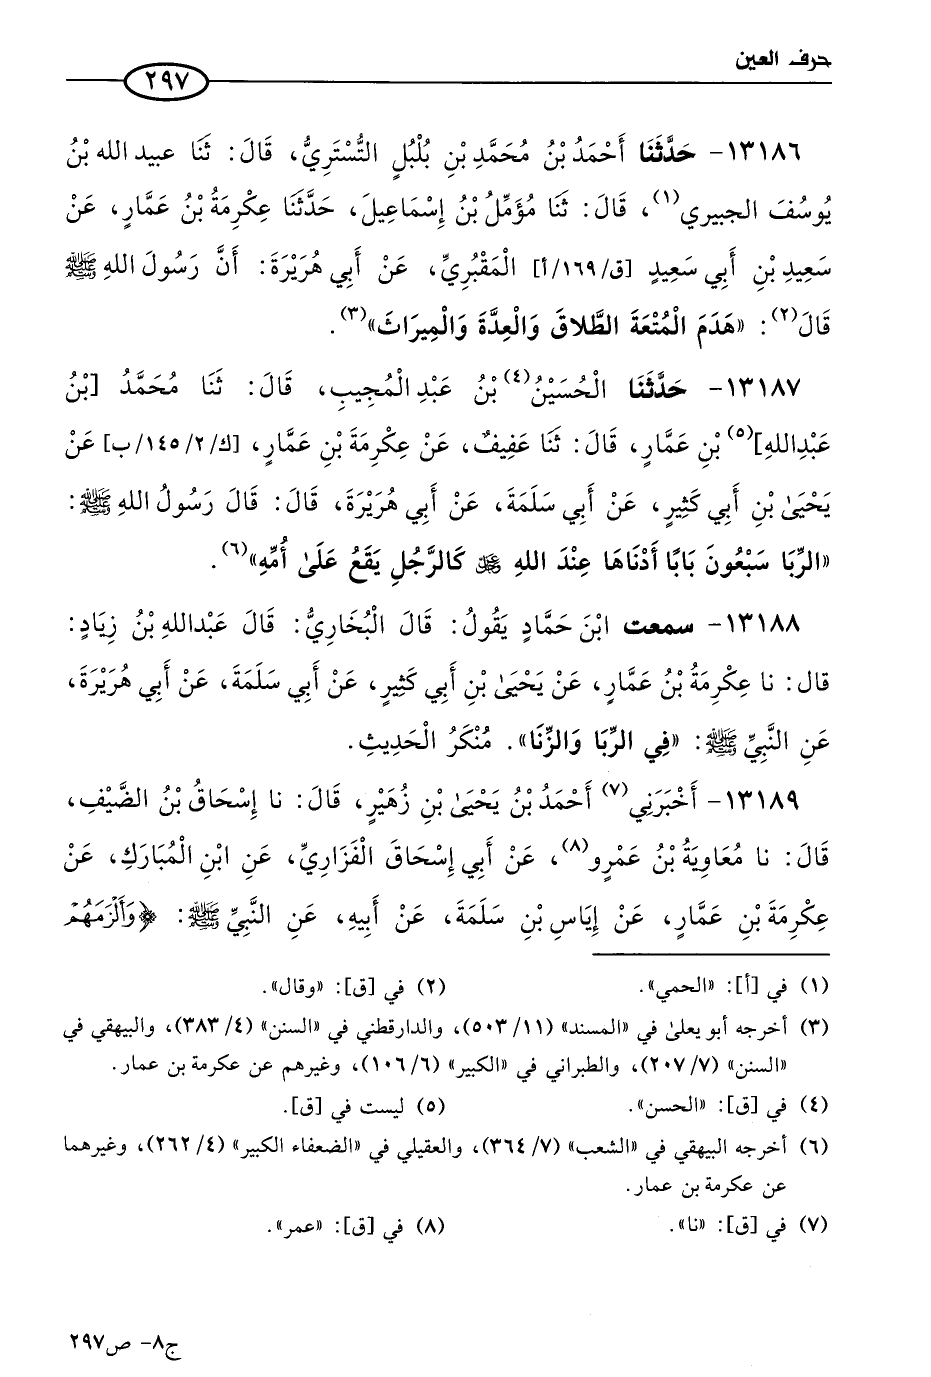 حرف العين
٢٩٧
١٣١٨٦- حَدَّثَنَا أَحْمَدُ بْنُ مُحَمَّدِ بْنِ بُلْبُلٍ التُّسْتَرِيُّ، قَالَ: ثَنَا عبيد الله بْنُ
يُوسُفَ الجبيري(١)، قَالَ: ثَنَا مُؤَمِّلُ بْنُ إِسْمَاعِيلَ، حَدَّثَنَا عِكْرِمَةُ بْنُ عَمَّارٍ، عَنْ
سَعِيدِ بْنِ أَبِي سَعِيدٍ [ق/١٦٩/أ] الْمَقْبُرِيِّ، عَنْ أَبِي هُرَيْرَةَ: أَنَّ رَسُولَ اللهِ ﷺ
قَالَ(٢): «هَدَمَ الْمُتْعَةَ الطَّلَاقَ وَالْعِدَّةَ وَالْمِيرَاثَ»(٣).
١٣١٨٧- حَدَّثَنَا الْحُسَيْنُ(٤) بْنُ عَبْدِ الْمُجِيبِ، قَالَ: ثَنَا مُحَمَّدُ [بْنُ
عَبْدِاللهِ](٥) بْنِ عَمَّارٍ، قَالَ: ثَنَا عَفِيفٌ، عَنْ عِكْرِمَةَ بْنِ عَمَّارٍ، [ك/٢/١٤٥/ب] عَنْ
يَحْيَىٰ بْنِ أَبِي كَثِيرٍ، عَنْ أَبِي سَلَمَةَ، عَنْ أَبِي هُرَيْرَةَ، قَالَ: قَالَ رَسُولُ اللهِ ﷺ:
«الرِّبَا سَبْعُونَ بَابًا أَدْنَاهَا عِنْدَ اللهِ ﷻ كَالرَّجُلِ يَقَعُ عَلَىٰ أُمِّهِ»(٦).
١٣١٨٨- سمعت ابْنَ حَمَّادٍ يَقُولُ: قَالَ الْبُخَارِيُّ: قَالَ عَبْدُاللهِ بْنُ زِيَادٍ:
قال: نا عِكْرِمَةُ بْنُ عَمَّارٍ، عَنْ يَحْيَىٰ بْنِ أَبِي كَثِيرٍ، عَنْ أَبِي سَلَمَةَ، عَنْ أَبِي هُرَيْرَةَ،
عَنِ النَّبِيِّ ﷺ: «فِي الرِّبَا وَالزِّنَا». مُنْكَرُ الْحَدِيثِ.
١٣١٨٩- أَخْبَرَنِي(٧) أَحْمَدُ بْنُ يَحْيَىٰ بْنِ زُهَيْرٍ، قَالَ: نا إِسْحَاقُ بْنُ الضَّيْفِ،
قَالَ: نا مُعَاوِيَةُ بْنُ عَمْرٍو(٨)، عَنْ أَبِي إِسْحَاقَ الْفَزَارِيِّ، عَنِ ابْنِ الْمُبَارَكِ، عَنْ
عِكْرِمَةَ بْنِ عَمَّارٍ، عَنْ إِيَاسِ بْنِ سَلَمَةَ، عَنْ أَبِيهِ، عَنِ النَّبِيِّ ﷺ: ﴿وَأَلْزَمَهُمْ
(١) في [أ]: «الحمي». (٢) في [ق]: «وقال».
(٣) أخرجه أبو يعلىٰ في «المسند» (١١/ ٥٠٣)، والدارقطني في «السنن» (٤/ ٣٨٣)، والبيهقي في
«السنن» (٧/ ٢٠٧)، والطبراني في «الكبير» (٦/ ١٠٦)، وغيرهم عن عكرمة بن عمار.
(٤) في [ق]: «الحسن». (٥) ليست في [ق].
(٦) أخرجه البيهقي في «الشعب» (٧/ ٣٦٤)، والعقيلي في «الضعفاء الكبير» (٤/ ٢٦٢)، وغيرهما
عن عكرمة بن عمار.
(٧) في [ق]: «نا». (٨) في [ق]: «عمر».
ج٨- ص٢٩٧